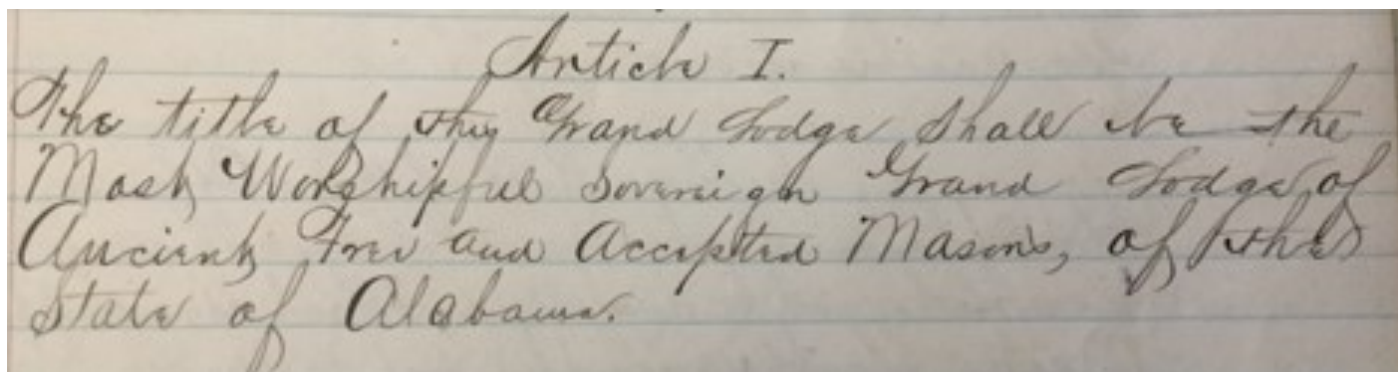 Article I.
The title of this Grand Lodge shall be the
Most Worshipful Sovereign Grand Lodge of
Ancient Free and Accepted Masons, of the
State of Alabama.